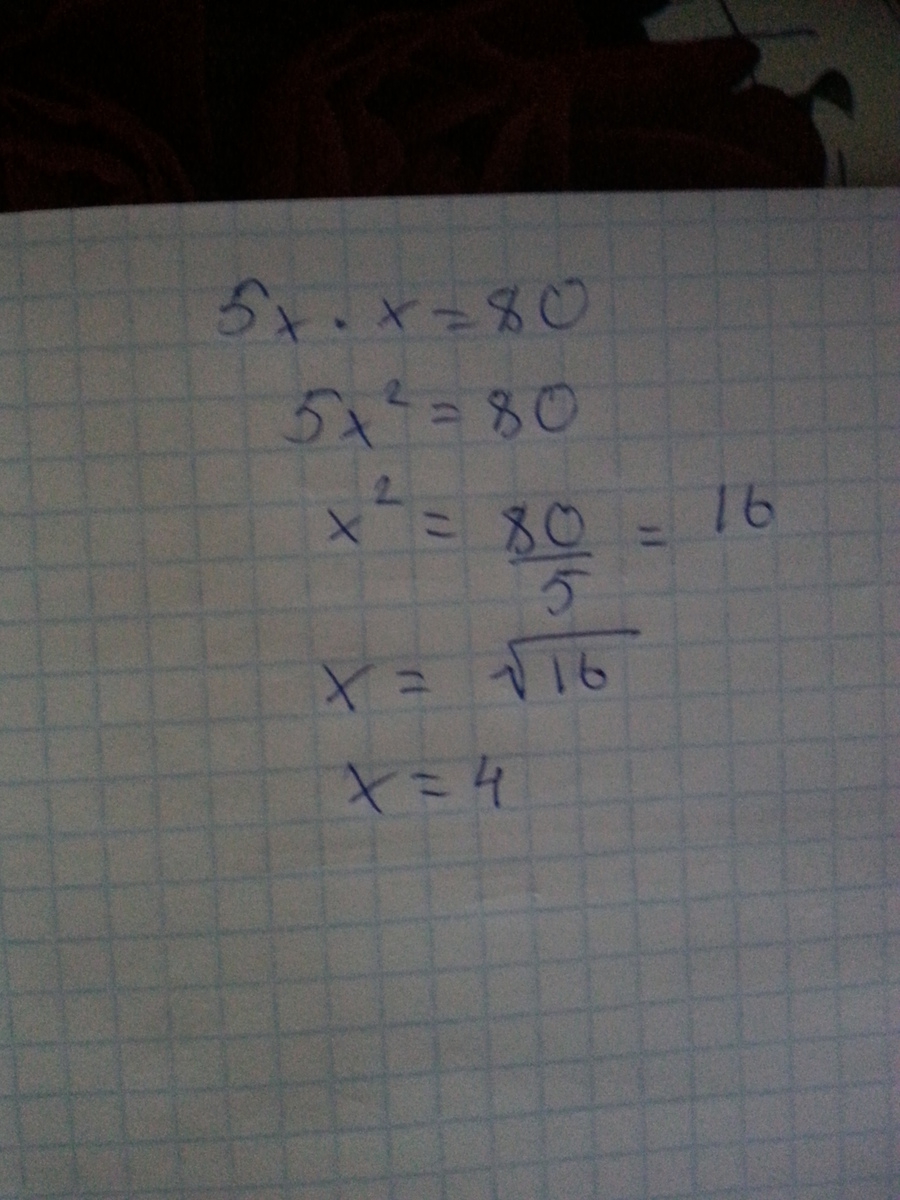 5x · x = 80
5x² = 80
x² = 80/5 = 16
x = √16
x = 4